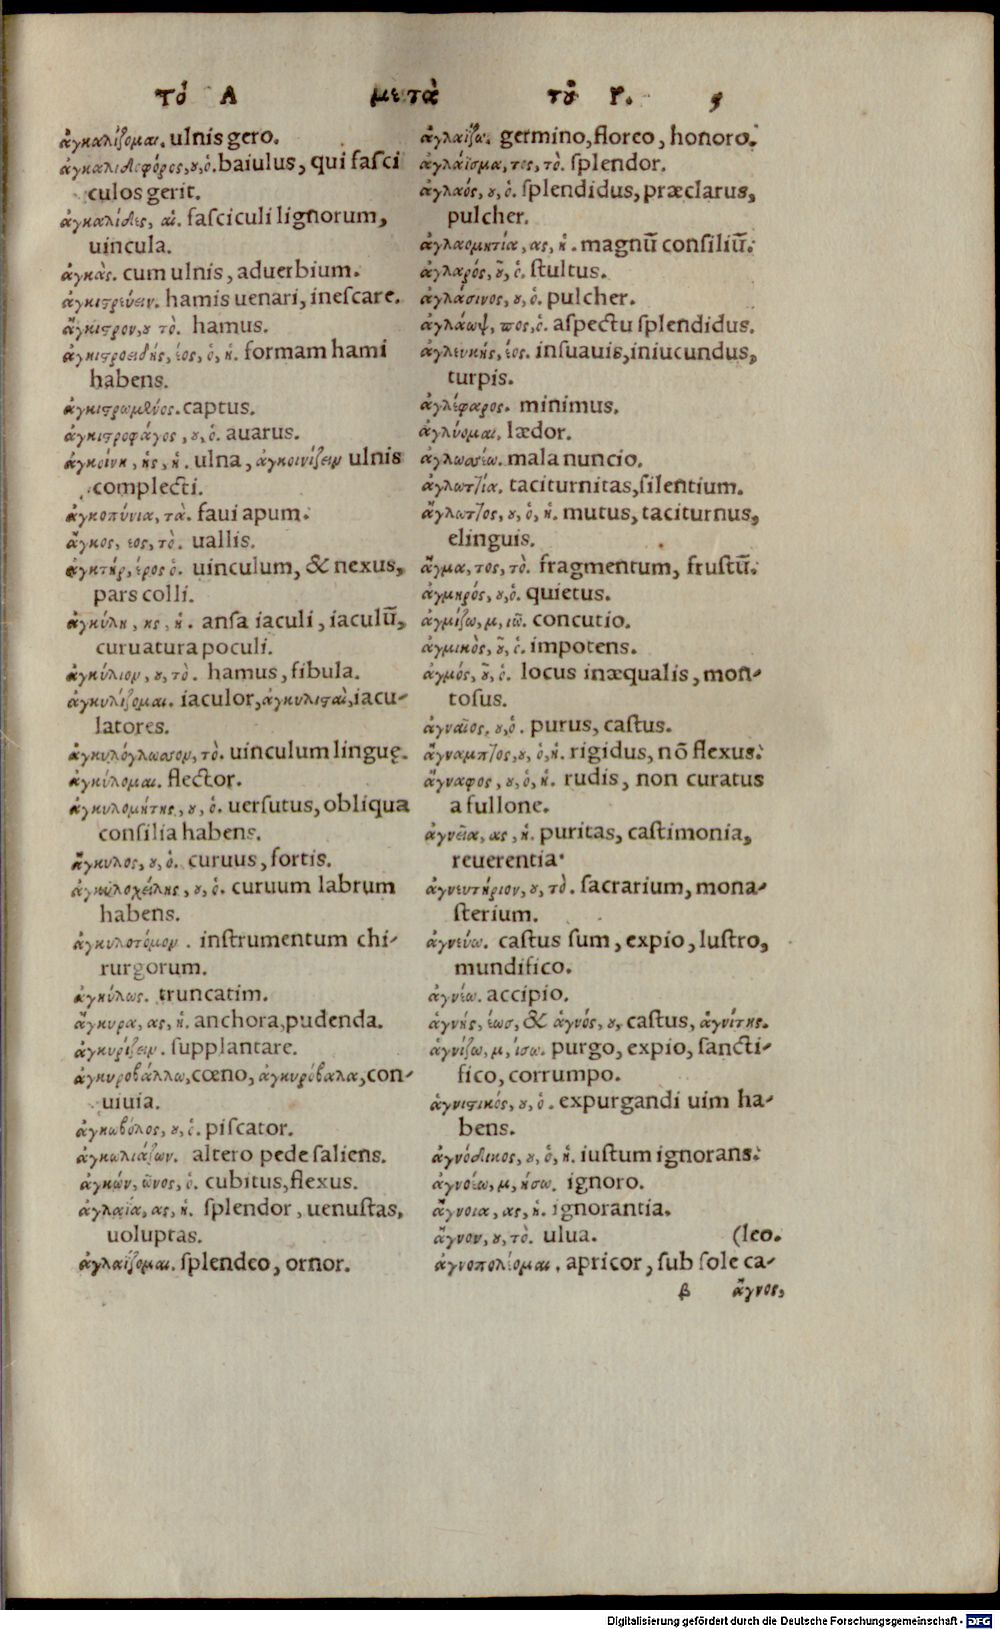 τὸ Α μετὰ τοῦ Γ. 5
ἀγκαλίζομαι. ulnis gero.
ἀγκαλιδοφόρος, ου, ὁ. baiulus, qui fasci
culos gerit.
ἀγκαλίδες, αἱ. fasciculi lignorum,
uincula.
ἀγκὰς. cum ulnis, aduerbium.
ἀγκιστρεύειν. hamis uenari, inescare.
ἄγκιστρον, ου τὸ. hamus.
ἀγκιστροειδής, έος, ὁ, ἡ. formam hami
habens.
ἀγκιστρωμένος. captus.
ἀγκιστροφάγος, ου, ὁ. auarus.
ἀγκοίνη, ης, ἡ. ulna, ἀγκοινίζειν ulnis
complecti.
ἀγκοπύνια, τὰ. faui apum.
ἄγκος, εος, τὸ. uallis.
ἀγκτήρ, έρος ὁ. uinculum, & nexus,
pars colli.
ἀγκύλη, ης, ἡ. ansa iaculi, iaculū,
curuatura poculi.
ἀγκύλιον, ου, τὸ. hamus, fibula.
ἀγκυλίζομαι. iaculor, ἀγκυλισταὶ, iacu-
latores.
ἀγκυλόγλωσσον, τὸ. uinculum linguę.
ἀγκύλομαι. flector.
ἀγκυλομήτης, ου, ὁ. uersutus, obliqua
consilia habens.
ἄγκυλος, ου, ὁ. curuus, fortis.
ἀγκυλοχείλης, ου, ὁ. curuum labrum
habens.
ἀγκυλοτόμον. instrumentum chi-
rurgorum.
ἀγκύλως. truncatim.
ἄγκυρα, ας, ἡ. anchora, pudenda.
ἀγκυρίζειν. supplantare.
ἀγκυροβάλλω, cœno, ἀγκυρόβαλα, con-
uiuia.
ἀγκωβόλος, ου, ὁ. piscator.
ἀγκωλιάζων. altero pede saliens.
ἀγκών, ῶνος, ὁ. cubitus, flexus.
ἀγλαΐα, ας, ἡ. splendor, uenustas,
uoluptas.
ἀγλαΐζομαι. splendeo, ornor.
ἀγλαΐζω. germino, floreo, honoro.
ἀγλάϊσμα, τος, τὸ. splendor.
ἀγλαός, ου, ὁ. splendidus, præclarus,
pulcher.
ἀγλαομητία, ας, ἡ. magnū consiliū.
ἀγλαρός, οῦ, ὁ. stultus.
ἀγλάσινος, ου, ὁ. pulcher.
ἀγλάωψ, πος, ὁ. aspectu splendidus.
ἀγλευκής, έος. insuauis, iniucundus,
turpis.
ἀγλέφαρος. minimus.
ἀγλύομαι. lædor.
ἀγλωσσέω. mala nuncio.
ἀγλωττία. taciturnitas, silentium.
ἄγλωττος, ου, ὁ, ἡ. mutus, taciturnus,
elinguis.
ἄγμα, τος, τὸ. fragmentum, frustū.
ἀγμηρός, ου, ὁ. quietus.
ἀγμίζω, μ, ιῶ. concutio.
ἀγμικὸς, οῦ, ὁ. impotens.
ἀγμός, οῦ, ὁ. locus inæqualis, mon-
tosus.
ἁγναῖος, ου, ὁ. purus, castus.
ἄγναμπτος, ου, ὁ, ἡ. rigidus, nō flexus.
ἄγναφος, ου, ὁ, ἡ. rudis, non curatus
a fullone.
ἁγνεία, ας, ἡ. puritas, castimonia,
reuerentia.
ἁγνευτήριον, ου, τὸ. sacrarium, mona-
sterium.
ἁγνεύω. castus sum, expio, lustro,
mundifico.
ἀγνέω. accipio.
ἁγνής, έωσ, & ἁγνός, ου, castus, ἁγνίτης.
ἁγνίζω, μ, ίσω. purgo, expio, sancti-
fico, corrumpo.
ἁγνιστικός, ου, ὁ. expurgandi uim ha-
bens.
ἀγνόδικος, ου, ὁ, ἡ. iustum ignorans.
ἀγνοέω, μ, ήσω. ignoro.
ἄγνοια, ας, ἡ. ignorantia.
ἄγνον, ου, τὸ. ulua. (leo.
ἀγνοπολέομαι. apricor, sub sole ca-
β ἄγνος,
Digitalisierung gefördert durch die Deutsche Forschungsgemeinschaft - DFG